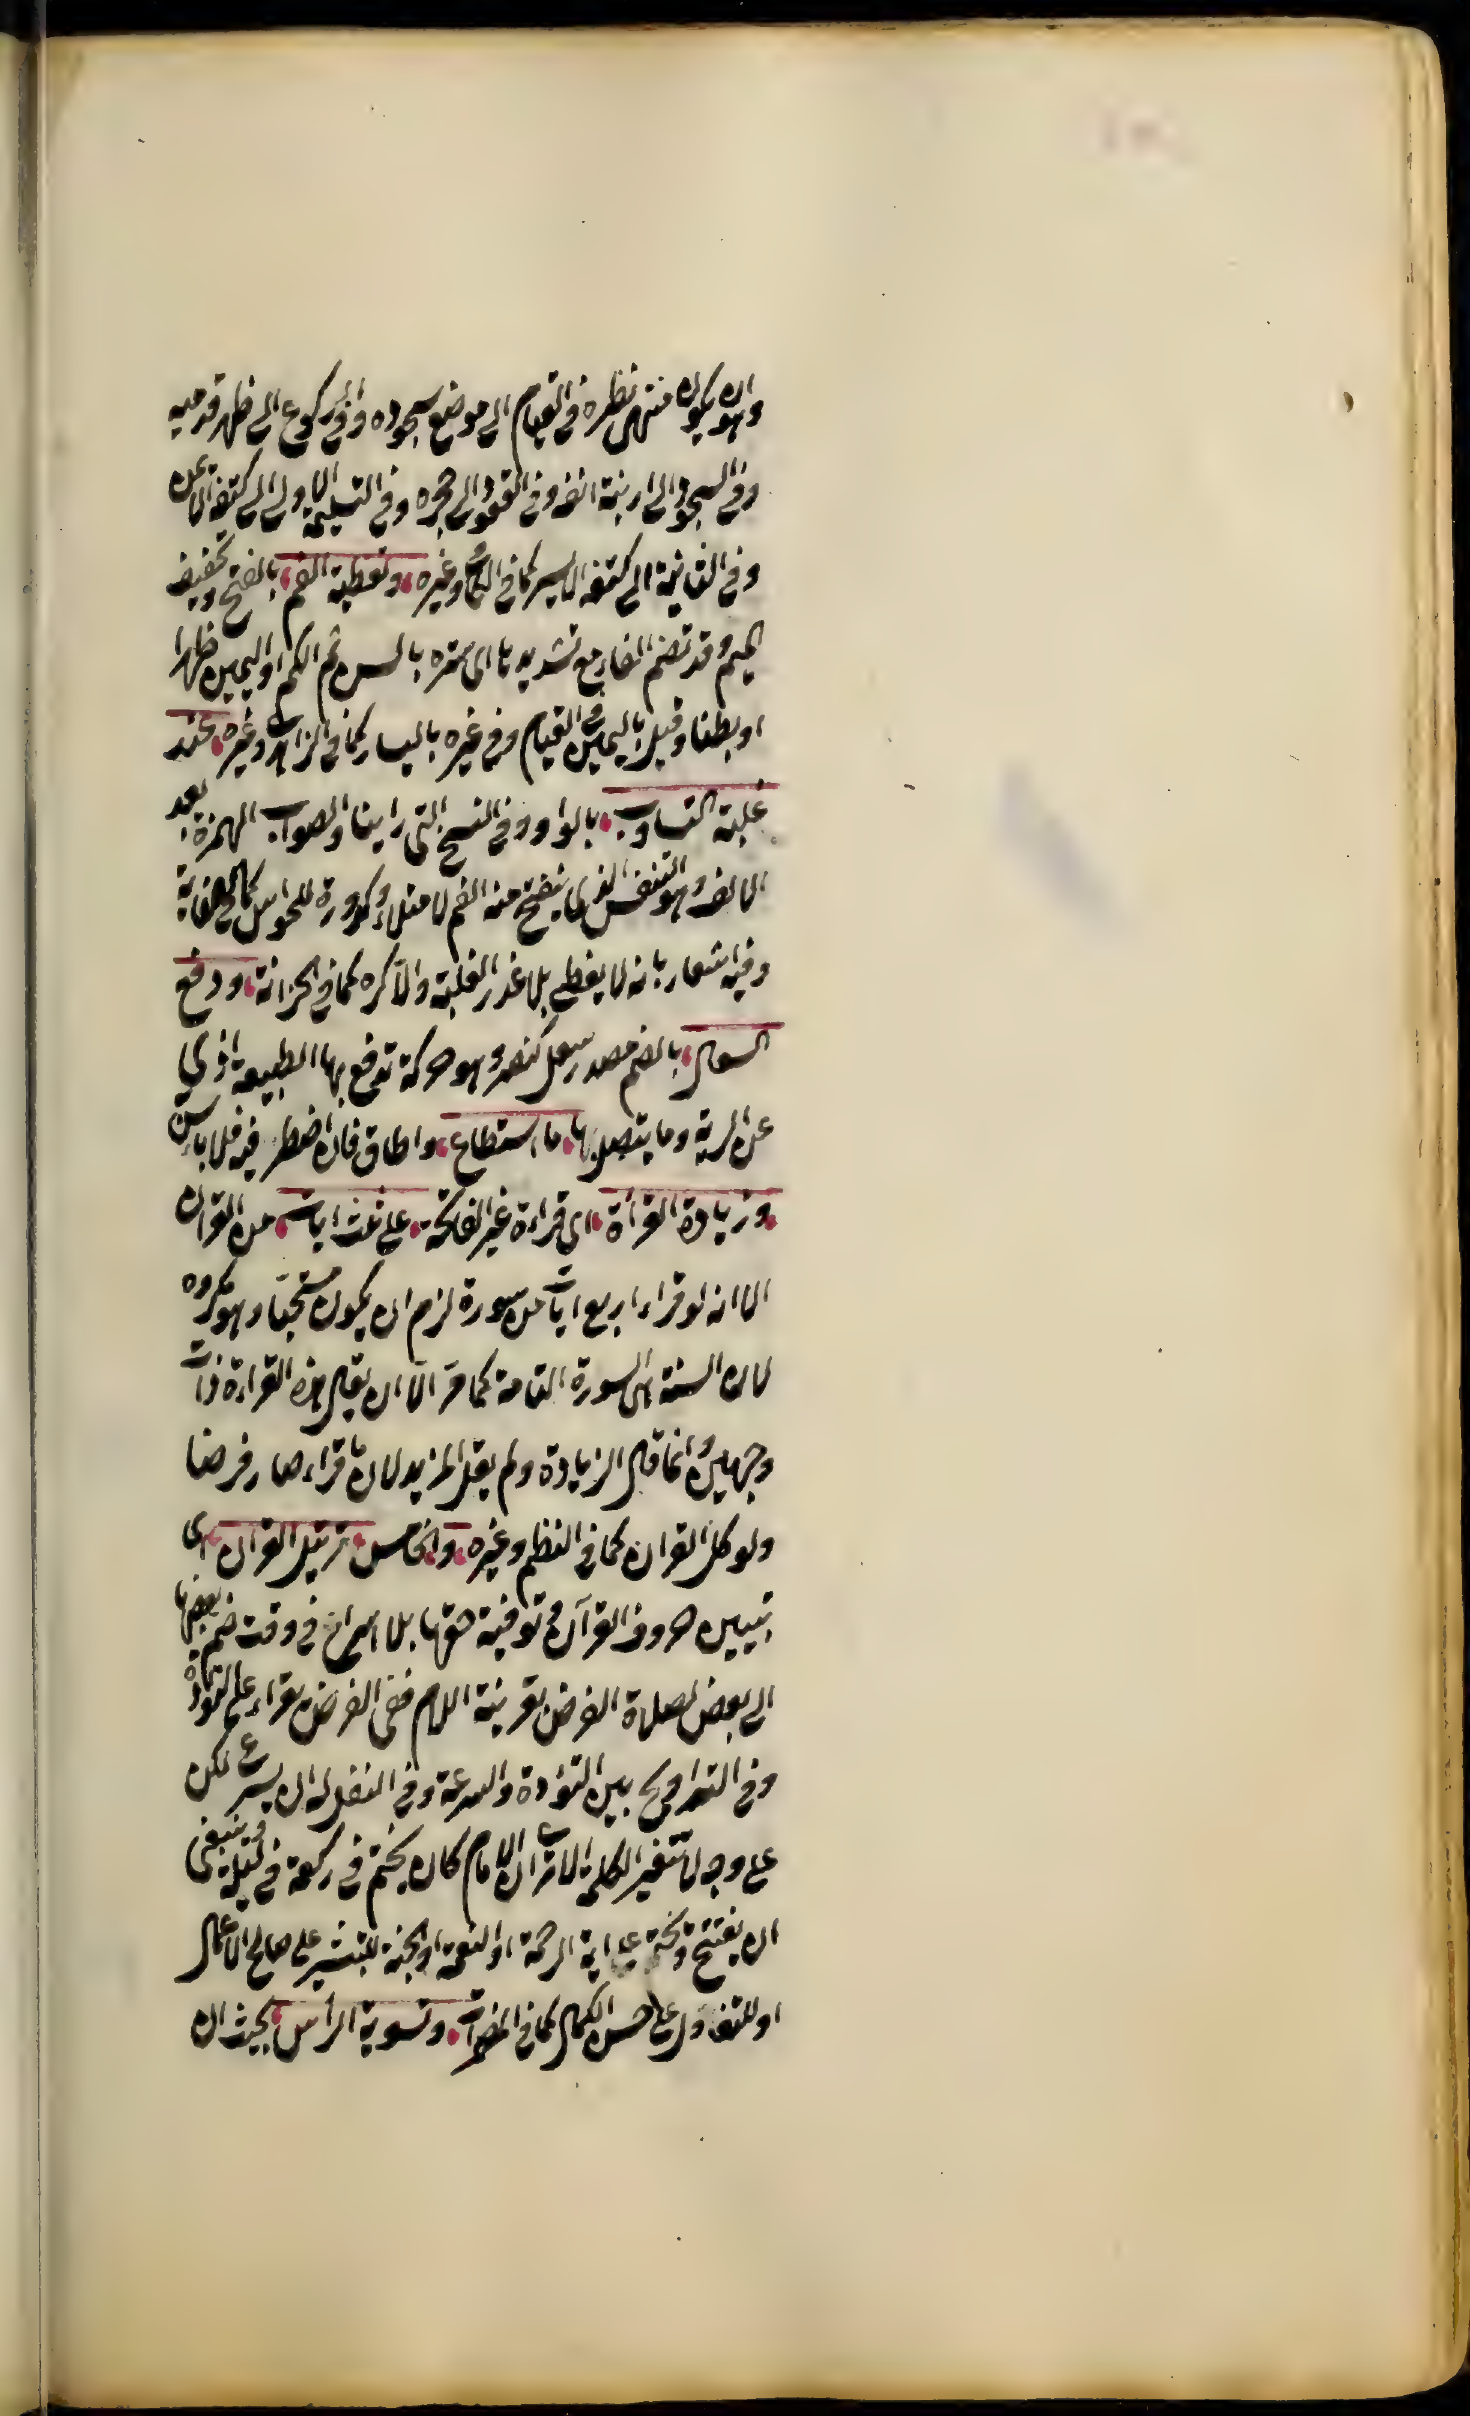 وهو ان يكون منتهى نظره في القيام الى موضع سجوده وفي الركوع الى ظهر قدميه
وفي السجود الى ارنبة انفه وفي القعود الى حجره وفي التسليمة الاولى الى كتفه الايمن
وفي الثانية الى كتفه الايسر كما في وغيره وتغطية الفم بالفتح وتخفيف
الميم وقد تضم الفاء مع تشديدها اى ستره بالسن ثم الكم او اليمين ظهرا
او بطنا وقيل باليمين في القيام وفي غيره باليسار كما في الزاهدي وغيره عند
غلبة التثاوب بالواو وفي النسخ التي راينا والصواب الهمزة بعد
الالف وهو التنفس الذي ينفتح منه الفم لامتلاء وكدورة للحواس كما في
وفيه اشعار بانه لا يغطي بلا عذر الغلبة والا كره كما في الخزانة ودفع
السعال بالضم مصدر سعل كنصر وهو حركة تدفع بها الطبيعة اذى
عن الرية وما يتصل بها ما استطاع واطاق فان اضطر فيه فلا باس
وزيادة القرأة اى قراءة غير الفاتحة على ثلث ايات من القران
الا انه لو قراء اربع ايات من سورة لزم ان يكون مستحبا وهو مكروه
لان السنة هى السورة التامة كما مر الا ان يقال هذه القراءة ذات
وجهين وانما قال الزيادة ولم يقل المزيد لان ما قراء صار فرضا
ولو كل القران كما في النظم وغيره والخامس ترتيل القران اى
تبيين حروف القرآن في توفية حقها بلا اسراع في وقت ضم بعضها
الى بعض لصلاة الفرض بقرينة اللام ففي الفرض يقراء على التؤدة
وفي التراويح بين التؤدة والسرعة وفي النفل له ان يسرع لكن
على وجه لا تتغير الكلمة الا ترى ان الامام كان يختم في ركعة في ليلة وينبغي
ان يفتتح ويختم على اية الرحمة او النعمة او الجنة للتبشير على صالح الاعمال
او للتفاول على حسن الكمال كما في المضمرات وتسوية الرأس بحيث ان